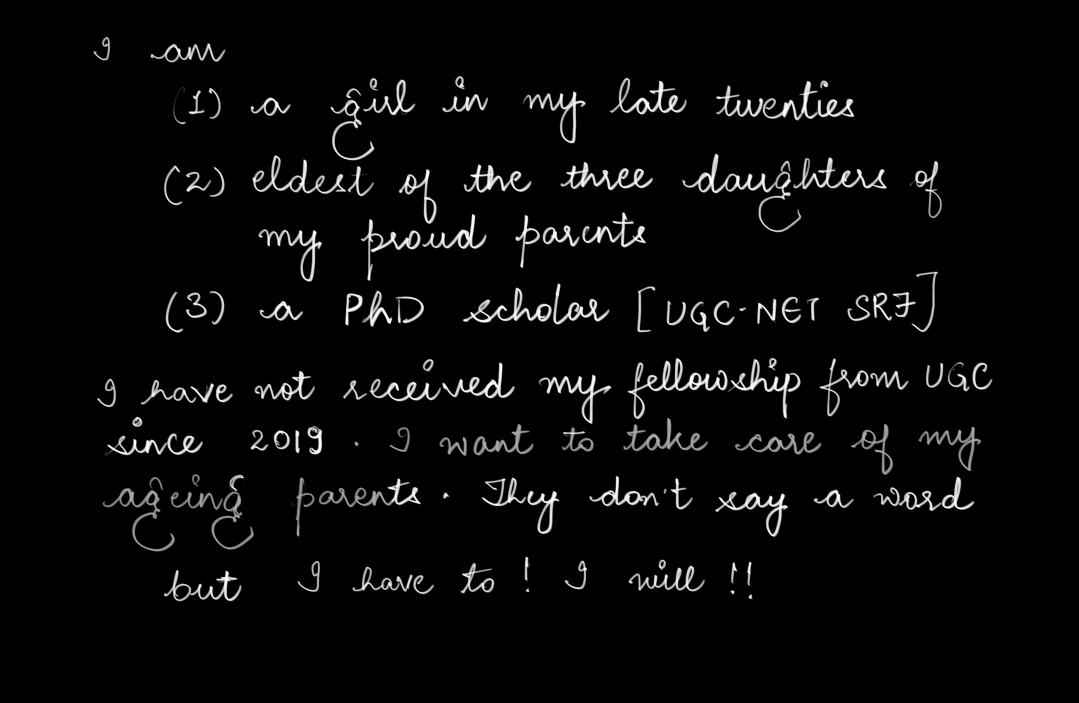 I am
(1) a girl in my late twenties
(2) eldest of the three daughters of
my proud parents
(3) a PhD scholar [UGC-NET SRF]
I have not received my fellowship from UGC
since 2019. I want to take care of my
ageing parents. They don't say a word
but I have to! I will!!